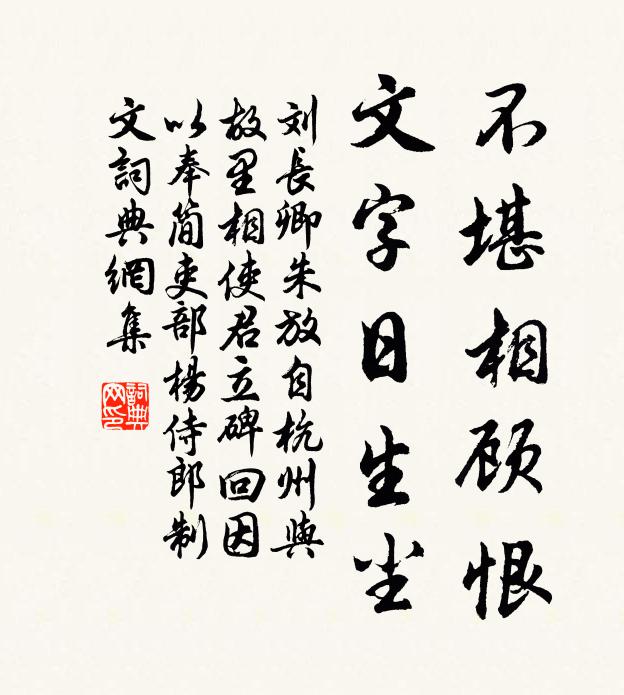 不堪相顾恨
文字日生尘
刘長卿朱放自杭州與
故里相使君立碑回因
以奉简吏部楊侍郎制
文詞典網集
詞典網印